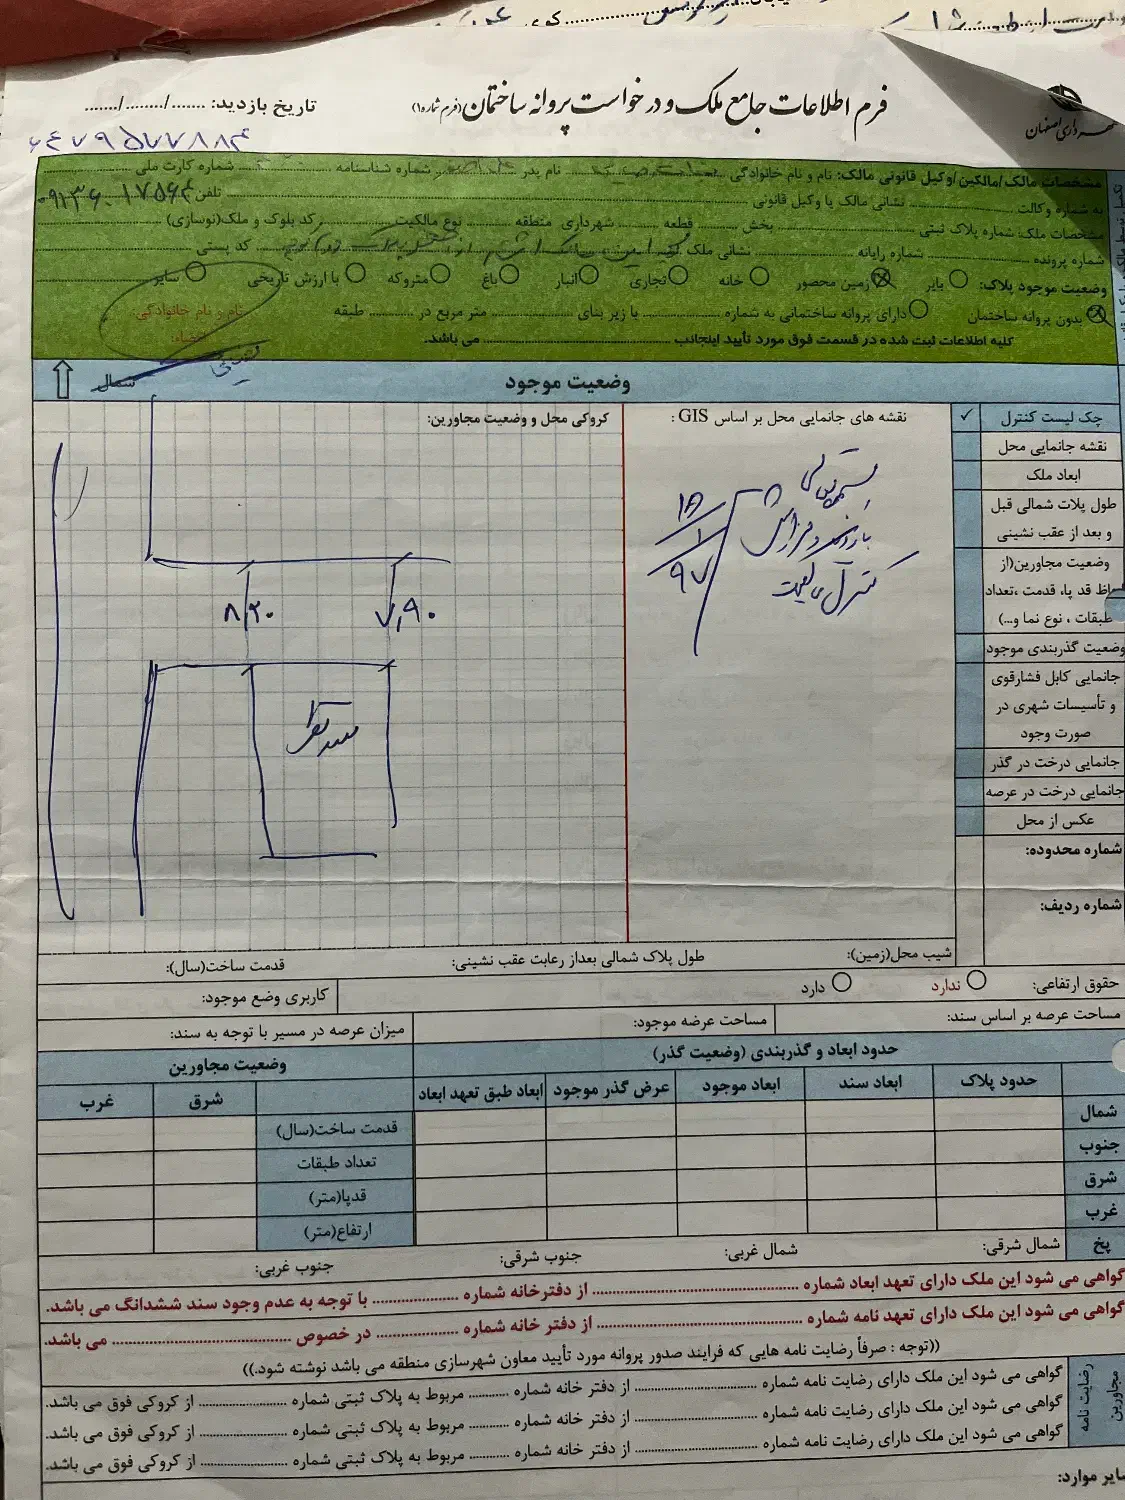 کوی
شهرداری اصفهان
فرم اطلاعات جامع ملک و درخواست پروانه ساختمان (فرم شماره۱)
تاریخ بازدید: ......./......../.......
مشخصات مالک/مالکین/وکیل قانونی مالک: نام و نام خانوادگی .................... نام پدر .................... شماره شناسنامه .................... شماره کارت ملی ....................
به شماره وکالت .................... نشانی مالک یا وکیل قانونی .................... تلفن
مشخصات ملک: شماره پلاک ثبتی .................... بخش .......... قطعه .......... شهرداری منطقه .......... نوع مالکیت .................... کد بلوک و ملک(نوسازی) ....................
شماره پرونده .................... شماره رایانه .................... نشانی ملک .................... کد پستی ....................
وضعیت موجود پلاک: بایر زمین محصور خانه تجاری انبار باغ متروکه با ارزش تاریخی سایر
بدون پروانه ساختمان دارای پروانه ساختمانی به شماره .................... با زیر بنای .................... متر مربع در .................... طبقه
نام و نام خانوادگی:
امضاء:
کلیه اطلاعات ثبت شده در قسمت فوق مورد تأیید اینجانب .................... می باشد.
وضعیت موجود
شمال
چک لیست کنترل ✓
نقشه جانمایی محل
ابعاد ملک
طول پلات شمالی قبل
و بعد از عقب نشینی
وضعیت مجاورین(از
لحاظ قد پا، قدمت ،تعداد
طبقات ، نوع نما و...)
وضعیت گذربندی موجود
جانمایی کابل فشارقوی
و تأسیسات شهری در
صورت وجود
جانمایی درخت در گذر
جانمایی درخت در عرصه
عکس از محل
شماره محدوده:
شماره ردیف:
نقشه های جانمایی محل بر اساس GIS :
۱۸/۱/۹۷
کروکی محل و وضعیت مجاورین:
۸/۲۰
۷,۹۰
شیب محل(زمین):
طول پلاک شمالی بعداز رعایت عقب نشینی:
قدمت ساخت(سال):
حقوق ارتفاعی: ندارد دارد
کاربری وضع موجود:
مساحت عرصه بر اساس سند:
مساحت عرضه موجود:
میزان عرصه در مسیر با توجه به سند:
حدود ابعاد و گذربندی (وضعیت گذر)
وضعیت مجاورین
حدود پلاک ابعاد سند ابعاد موجود عرض گذر موجود ابعاد طبق تعهد ابعاد
شرق غرب
شمال
جنوب
شرق
غرب
قدمت ساخت(سال)
تعداد طبقات
قدپا(متر)
ارتفاع(متر)
پخ شمال شرقی: شمال غربی: جنوب شرقی: جنوب غربی:
گواهی می شود این ملک دارای تعهد ابعاد شماره .................... از دفترخانه شماره .................... با توجه به عدم وجود سند ششدانگ می باشد.
گواهی می شود این ملک دارای تعهد نامه شماره .................... از دفتر خانه شماره .................... در خصوص .................... می باشد.
((توجه : صرفاً رضایت نامه هایی که فرایند صدور پروانه مورد تأیید معاون شهرسازی منطقه می باشد نوشته شود.))
رضایت نامه مجاورین
گواهی می شود این ملک دارای رضایت نامه شماره .................... از دفتر خانه شماره .......... مربوط به پلاک ثبتی شماره .................... از کروکی فوق می باشد.
گواهی می شود این ملک دارای رضایت نامه شماره .................... از دفتر خانه شماره .......... مربوط به پلاک ثبتی شماره .................... از کروکی فوق می باشد.
گواهی می شود این ملک دارای رضایت نامه شماره .................... از دفتر خانه شماره .......... مربوط به پلاک ثبتی شماره .................... از کروکی فوق می باشد.
سایر موارد: